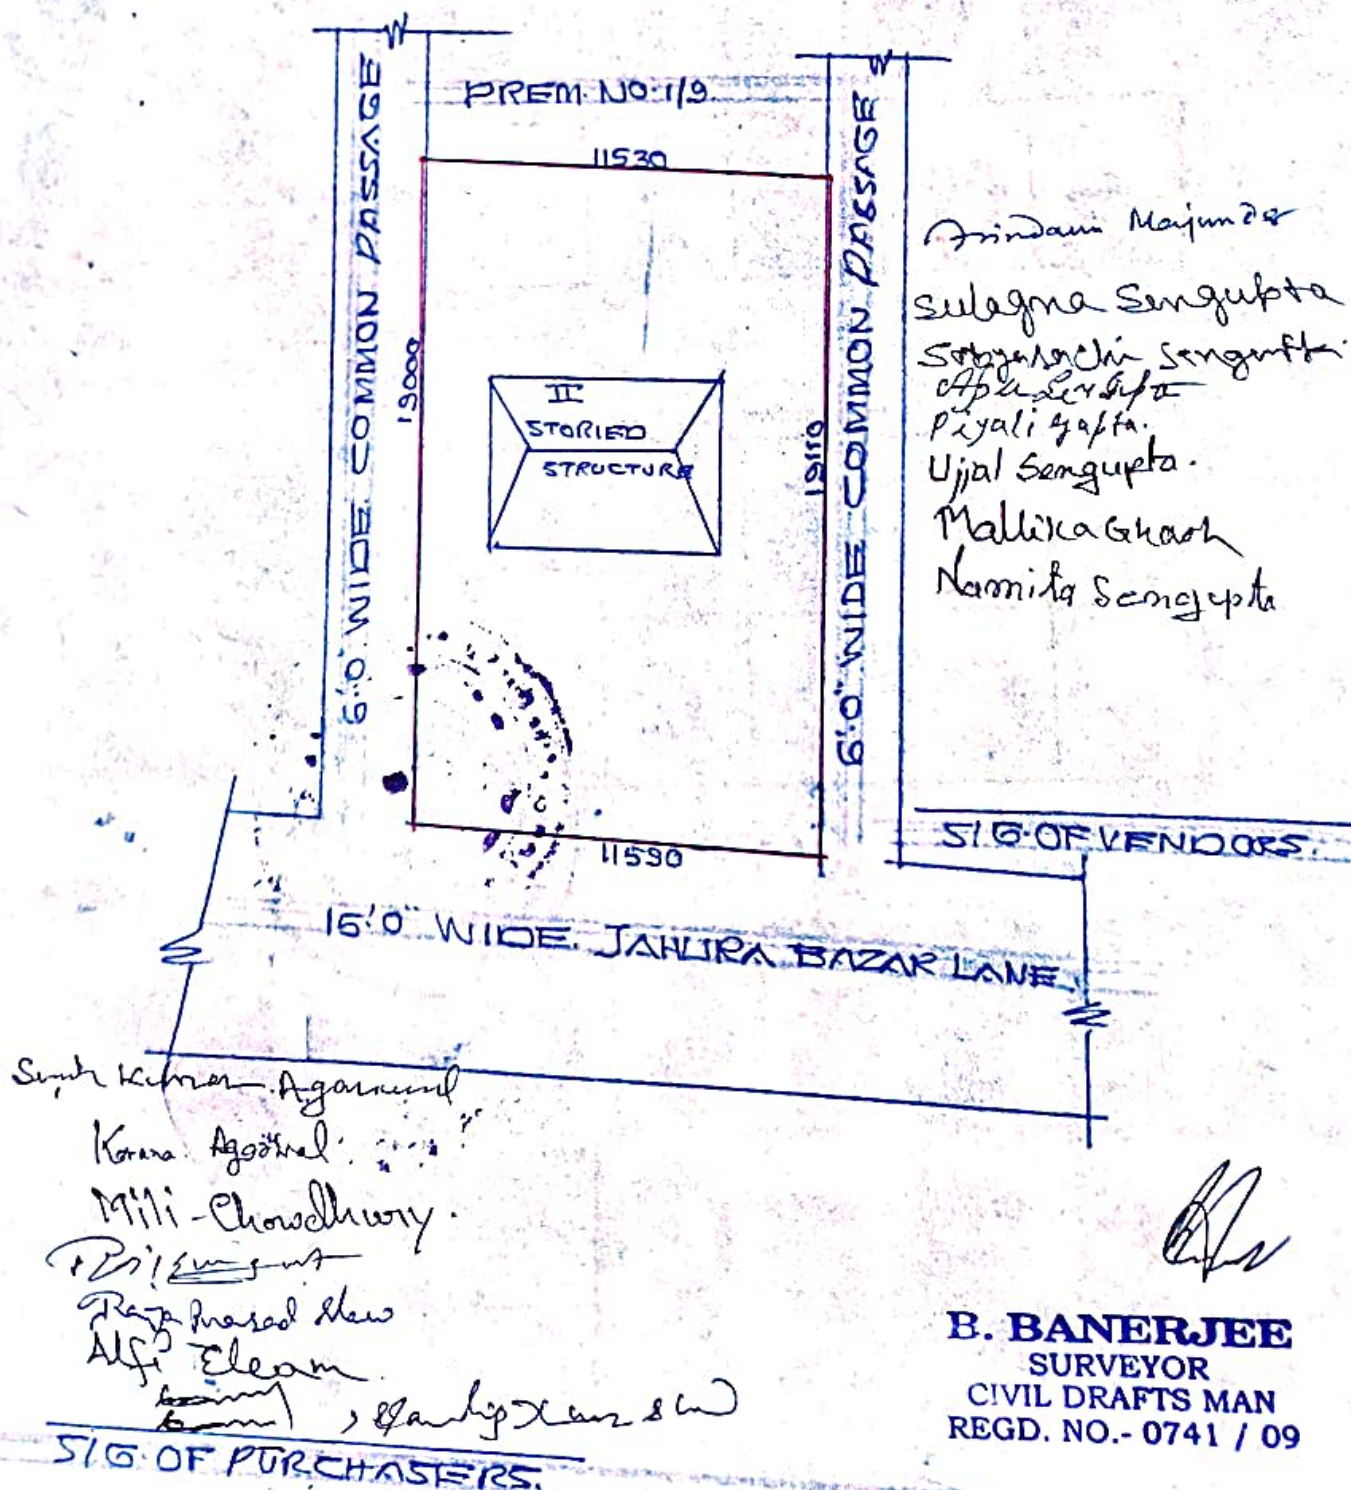 PREM. NO. 1/9.
11530
6'.0" WIDE COMMON PASSAGE
19000
II
STORIED
STRUCTURE
19110
6'.0" WIDE COMMON PASSAGE
11590
16'.0" WIDE. JAHURA BAZAR LANE.
Arindam Majumder
Sulagna Sengupta
Sabyasachi Sengupta.
Piyali Gupta.
Ujjal Sengupta.
Mallika Ghosh
Namita Sengupta
SIG. OF VENDORS.
Kumar Agarwal
Agarwal
Mili Chowdhury.
Raja Prasad Shaw
Alfi Eleam
SIG. OF PURCHASERS.
B. BANERJEE
SURVEYOR
CIVIL DRAFTS MAN
REGD. NO.- 0741 / 09